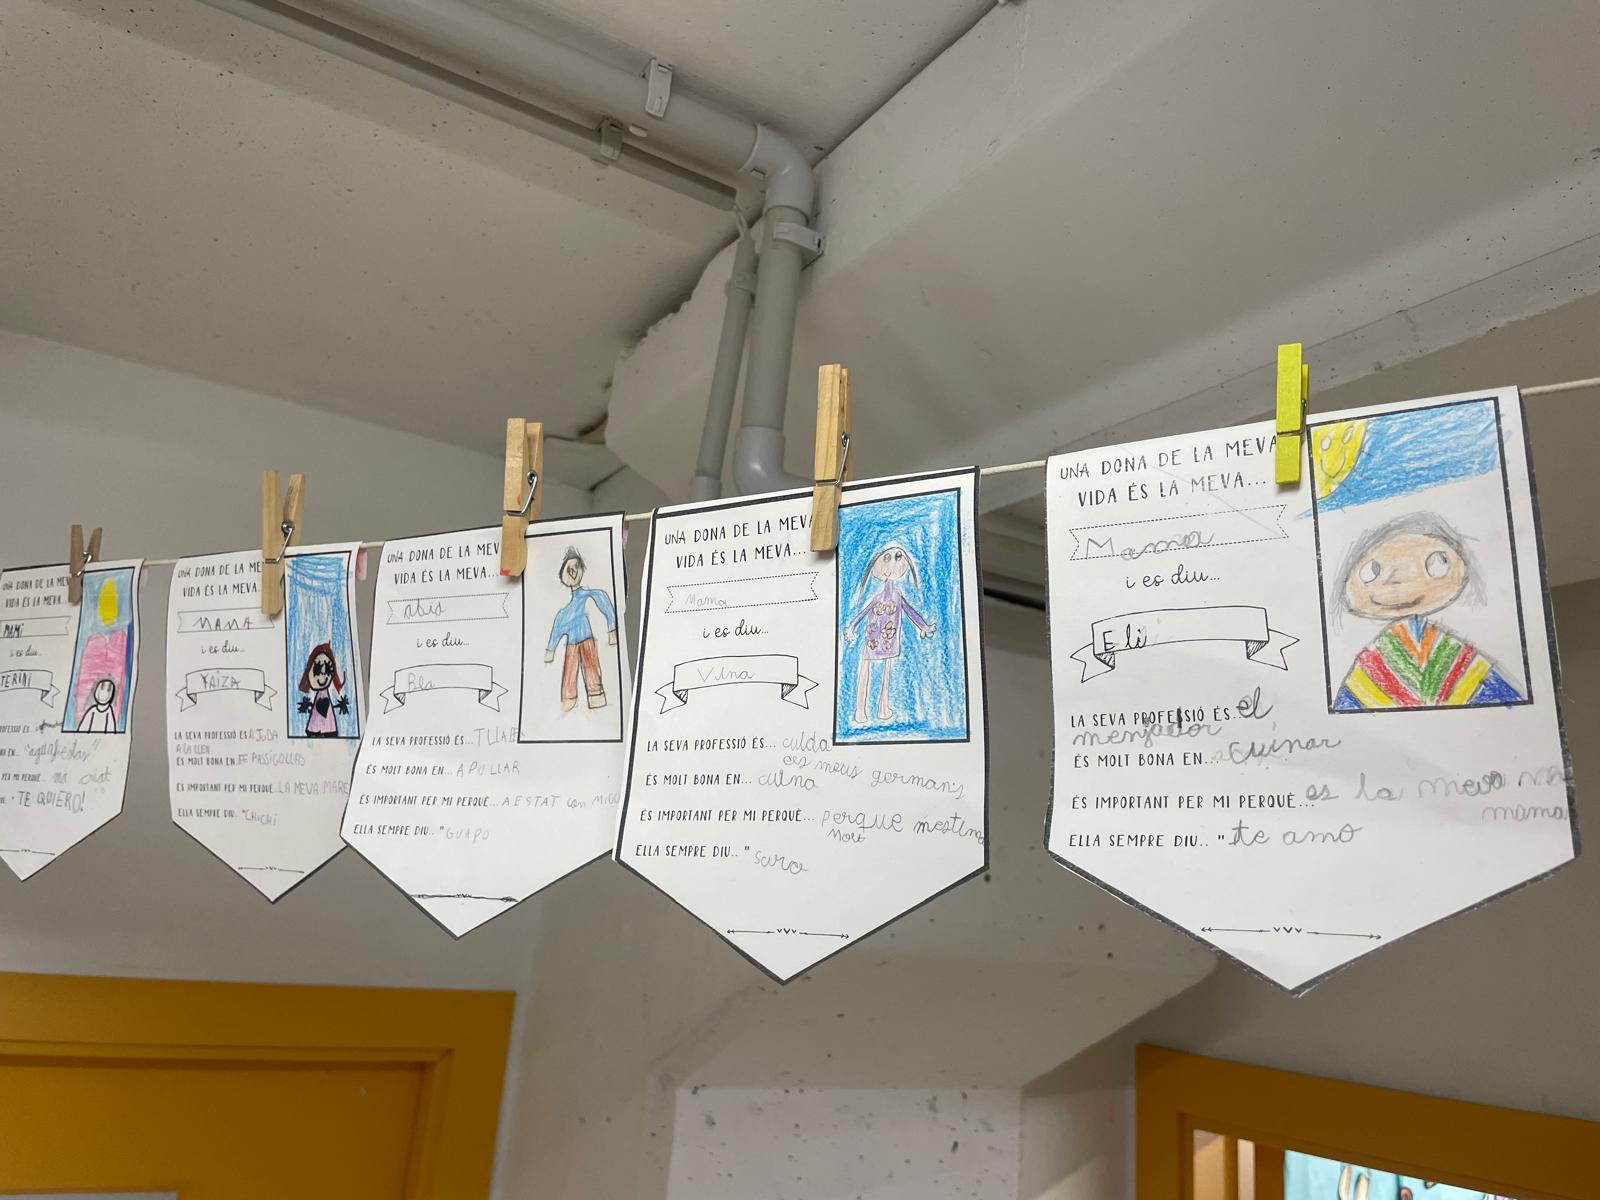 UNA DONA DE LA
VIDA ÉS LA MEVA...
MAMI
i es diu...
PROFESSIÓ ÉS...
EN... "aguafestas"
PER MI PERQUÈ...
"TE QUIERO!
UNA DONA DE LA
VIDA ÉS LA MEVA...
MAMA
i es diu...
YAIZA
LA SEVA PROFESSIÓ ÉS AJUDA
A LA LLEN
ÉS MOLT BONA EN... FE PASSIGOLLAS
ÉS IMPORTANT PER MI PERQUÈ... LA MEVA MARE
ELLA SEMPRE DIU.. "CHICHI
UNA DONA DE LA MEV
VIDA ÉS LA MEVA...
abia
i es diu...
LA SEVA PROFESSIÓ ÉS...
ÉS MOLT BONA EN... APULLAR
ÉS IMPORTANT PER MI PERQUÈ... A ESTAT con MIGO
ELLA SEMPRE DIU.. "GUAPO
UNA DONA DE LA MEVA
VIDA ÉS LA MEVA...
Mama
i es diu...
Vina
LA SEVA PROFESSIÓ ÉS... cuida
ees meus germans
ÉS MOLT BONA EN... cuina
ÉS IMPORTANT PER MI PERQUÈ... perque mestima
Molt
ELLA SEMPRE DIU.. "
UNA DONA DE LA MEVA
VIDA ÉS LA MEVA...
Mama
i es diu...
Eli
LA SEVA PROFESSIÓ ÉS... el
menjador
ÉS MOLT BONA EN... a cuinar
ÉS IMPORTANT PER MI PERQUÈ... es la meva
mama
ELLA SEMPRE DIU.. "te amo